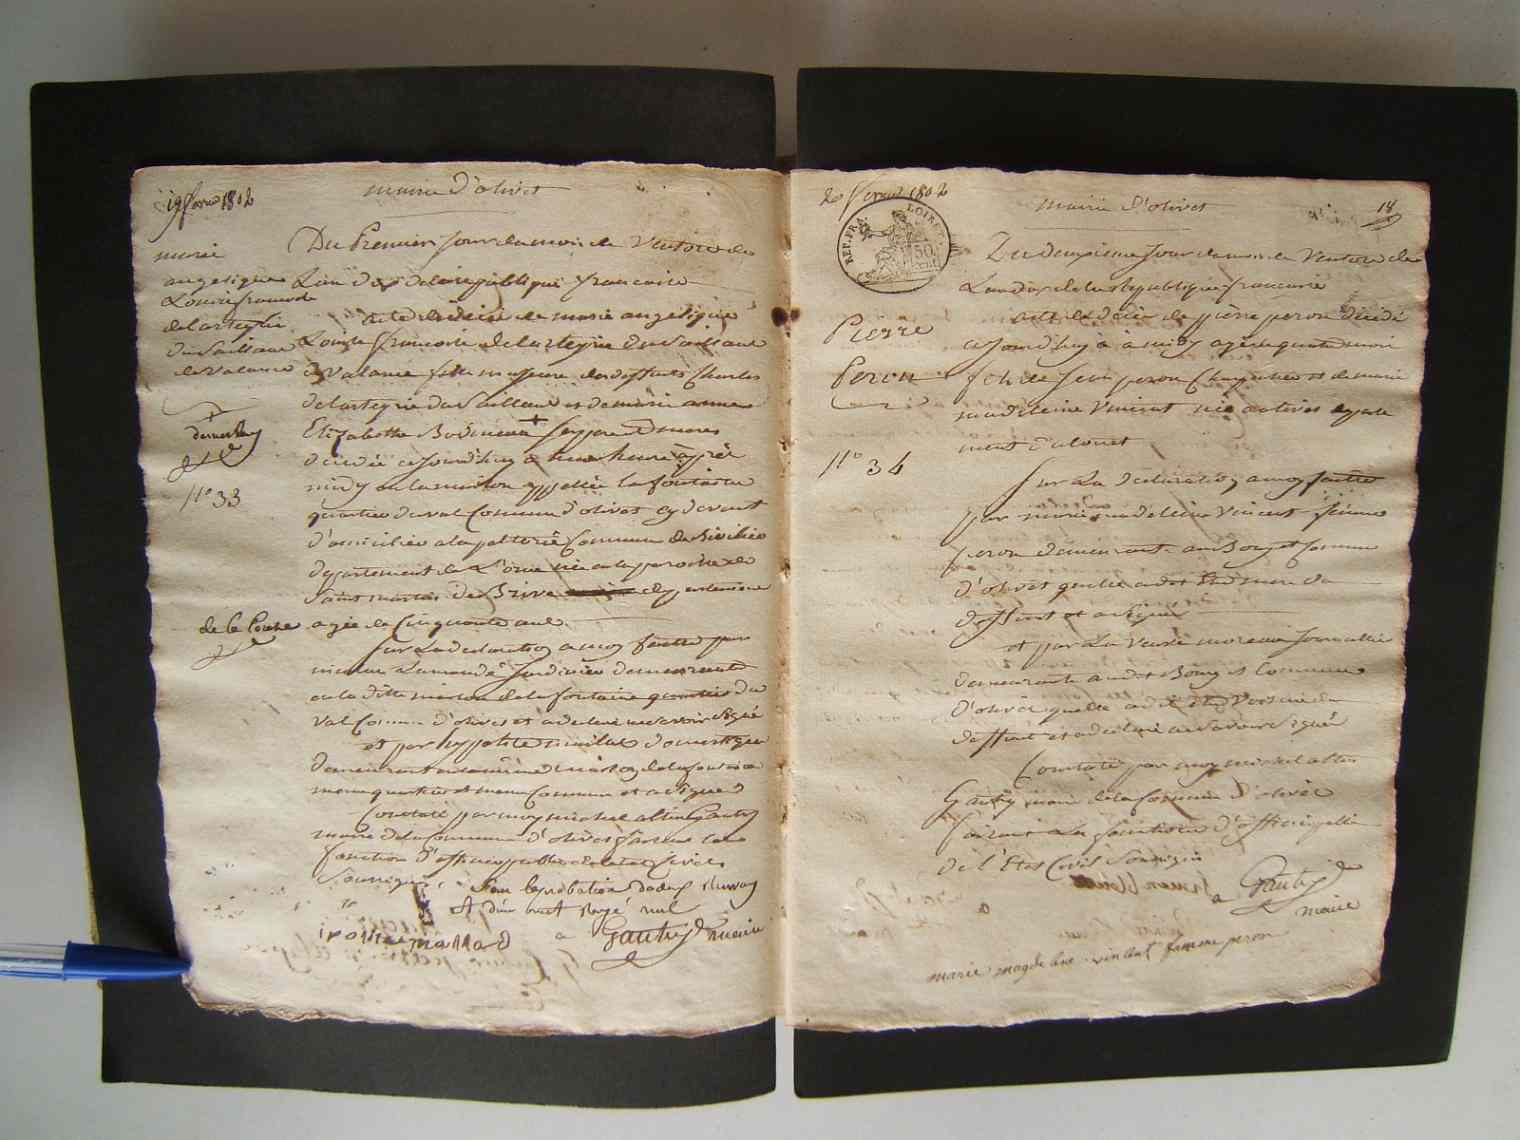 19 fevrier 1802
mairie d'olivet
marie
angelique
Louise francoise
delasteyrie
du Saillant
de valance
dumesnil
n° 33
de la Coreze
Du Premier jour du mois de Ventose de
L'an dix de la republique francaise
acte de décès de marie angelique
Louise francoise delasteyrie du Saillant
de valance fille majeure des deffunts Charles
delasteyrie du Saillant et de marie anne
Elizabethe ses pere et mere
décédée ce jourd'huy a une heure après
midy en la maison appellée la fontaine
quartier du val Commune d'olivet cy devant
domiciliée a Commune de
departement de L'orne née en la paroisse de
Saint martin de Brive departement
agée de Cinquante ans
Sur la declaration a moy faitte par
nicolas jardinier demeurant
en la ditte maison de la fontaine quartier du
val Commune d'olivet et a declaré ne savoir signé
et par hyppolite domestique
demeurant en la même maison de la fontaine
meme quartier et meme Commune et a signé
Constaté par moy michel altin Gautry
maire de la Commune d'olivet faisant les
fonction d'officier public de l'état Civil
Soussigné
et d'un mot rayé nul
Gautry
maire
20 fevrier 1802
REP. FRA.
LOIRET
50
mairie d'olivet
18
Pierre
Peron
n° 34
Du deuxieme jour du mois de Ventose de
L'an dix de la republique francaise
acte de décès de pierre peron décédé
ce jourd'huy a midy agé de quatre mois
fils de jean peron Charpentier et de marie
madeleine Vincent né a olivet
ment d'olivet
Sur La declaration a moy faitte
par marie madeleine Vincent femme
peron demeurante au Bourg et Commune
d'olivet quelle a dit etre mere du
deffunt et a signé
et par La Veuve moreau journalliere
demeurante au dit Bourg et Commune
d'olivet quelle a dit etre Voisine du
deffunt et a declaré ne savoir signé
Constaté par moy michel altin
Gautry maire de la Commune d'olivet
faisant les fonctions d'officier public
de l'Etat Civil Soussigné
Gautry
maire
marie magdelene vincent femme peron